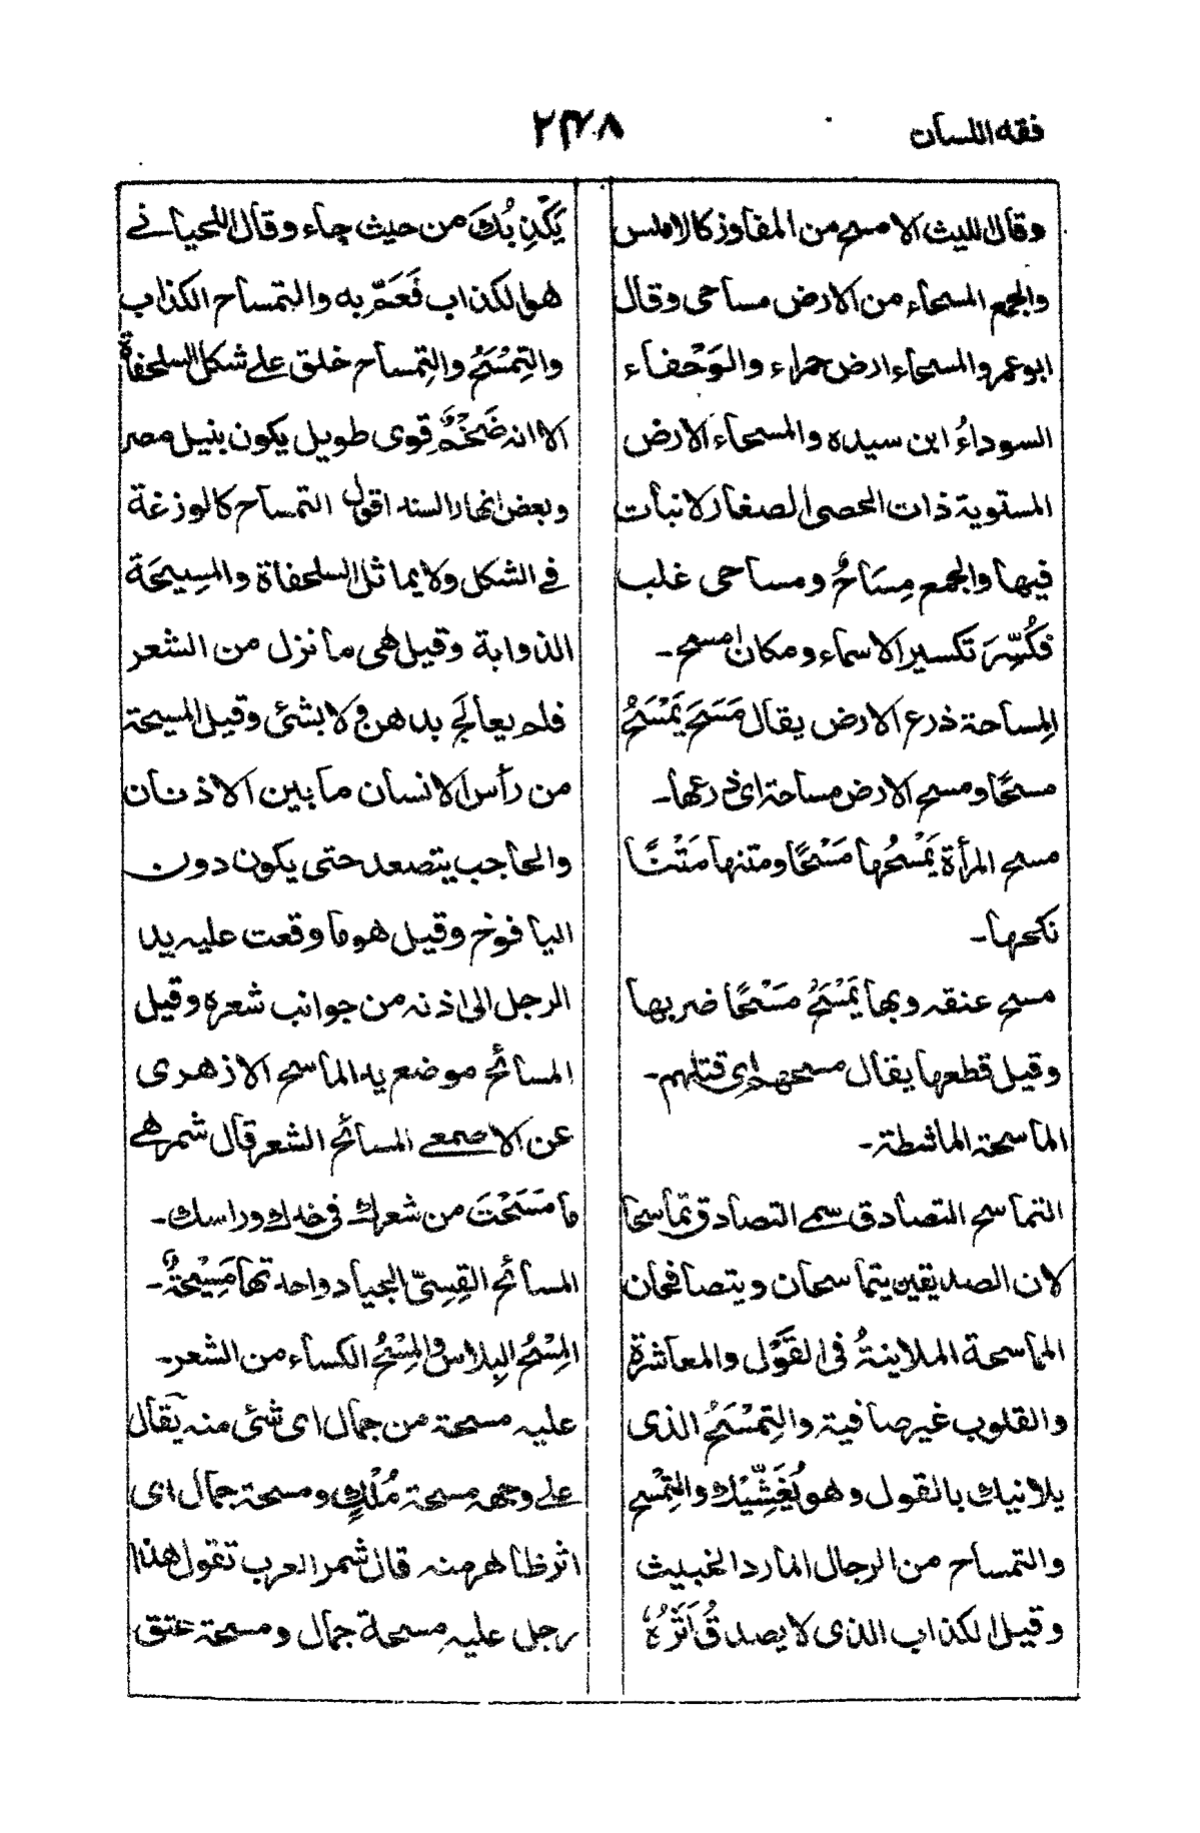 فقه اللسان
وقال الليث الامسح من المفاوز كالاملس
والجمع المسحاء من الارض مساحى وقال
ابوعمرو المسحاء ارض حمراء والوَحْفاء
السوداءُ ابن سيده والمسحاء الارض
المستوية ذات الحصى الصغار لا نبات
فيها والجمع مِسَاحٌ ومساحى غلب
فكُسِّرَ تكسير الاسماء ومكان امسح -
المِساحة ذرع الارض يقال مَسَحَ يَمْسَحُ
مسحًا ومسح الارض مساحة اى ذرعها -
مسح المرأة يَمْسَحُها مَسْحًا ومتنها مَتْنًا
نكحها -
مسح عنقه وبها يَمْسَحُ مَسْحًا ضربها
وقيل قطعها يقال مسحهم اى قتلهم -
الماسحة الماشطة -
التماسح التصادق سمى التصادق تماسحا
لان الصديقين يتماسحان ويتصافحان
المماسحة الملاينةُ فى القَوْل والمعاشرة
والقلوب غير صافية والتِمْسَحُ الذى
يلانيك بالقول وهو يُغَشِّيْك والتِمْسح
والتمساح من الرجال المارد الخبيث
وقيل الكذاب الذى لا يصدقُ اَثَرُهُ
يَكْذِبُكَ من حيث جاء وقال اللحيانى
هو الكذاب فَعَمَّ به والتمساح الكذاب
والتِمْسَحُ والتِمساح خلق على شكل السلحفاة
الا انه ضَخْمٌ قوى طويل يكون بنيل مصر
وبعض انهار السند اقول التمساح كالوزغة
فى الشكل ولا يماثل السلحفاة والمسِيحَة
الذوابة وقيل هى ما نزل من الشعر
فلم يعالَج بدهن ولا بشئى وقيل المسيحة
من رأس الانسان ما بين الاذنان
والحاجب يتصعد حتى يكون دون
اليافوخ وقيل هو ما وقعت عليه يد
الرجل الى اذنه من جوانب شعره وقيل
المسائح موضع يد الماسح الازهرى
عن الاصمعى المسائح الشعر قال شمر هى
ما مَسَحْتَ من شعرك فى خدك وراسك -
المسائح القِسِىّ الجياد واحدتها مَسِيْحةٌ -
المِسْحُ البِلاس والمِسْحُ الكساء من الشعر -
عليه مسحة من جمال اى شئى منه يقال
على وجهه مسحة مُلْكٍ ومسحة جمال اى
اثر ظاهر منه قال شمر العرب تقول هذا
رجل عليه مسحة جمال ومسحة عتق